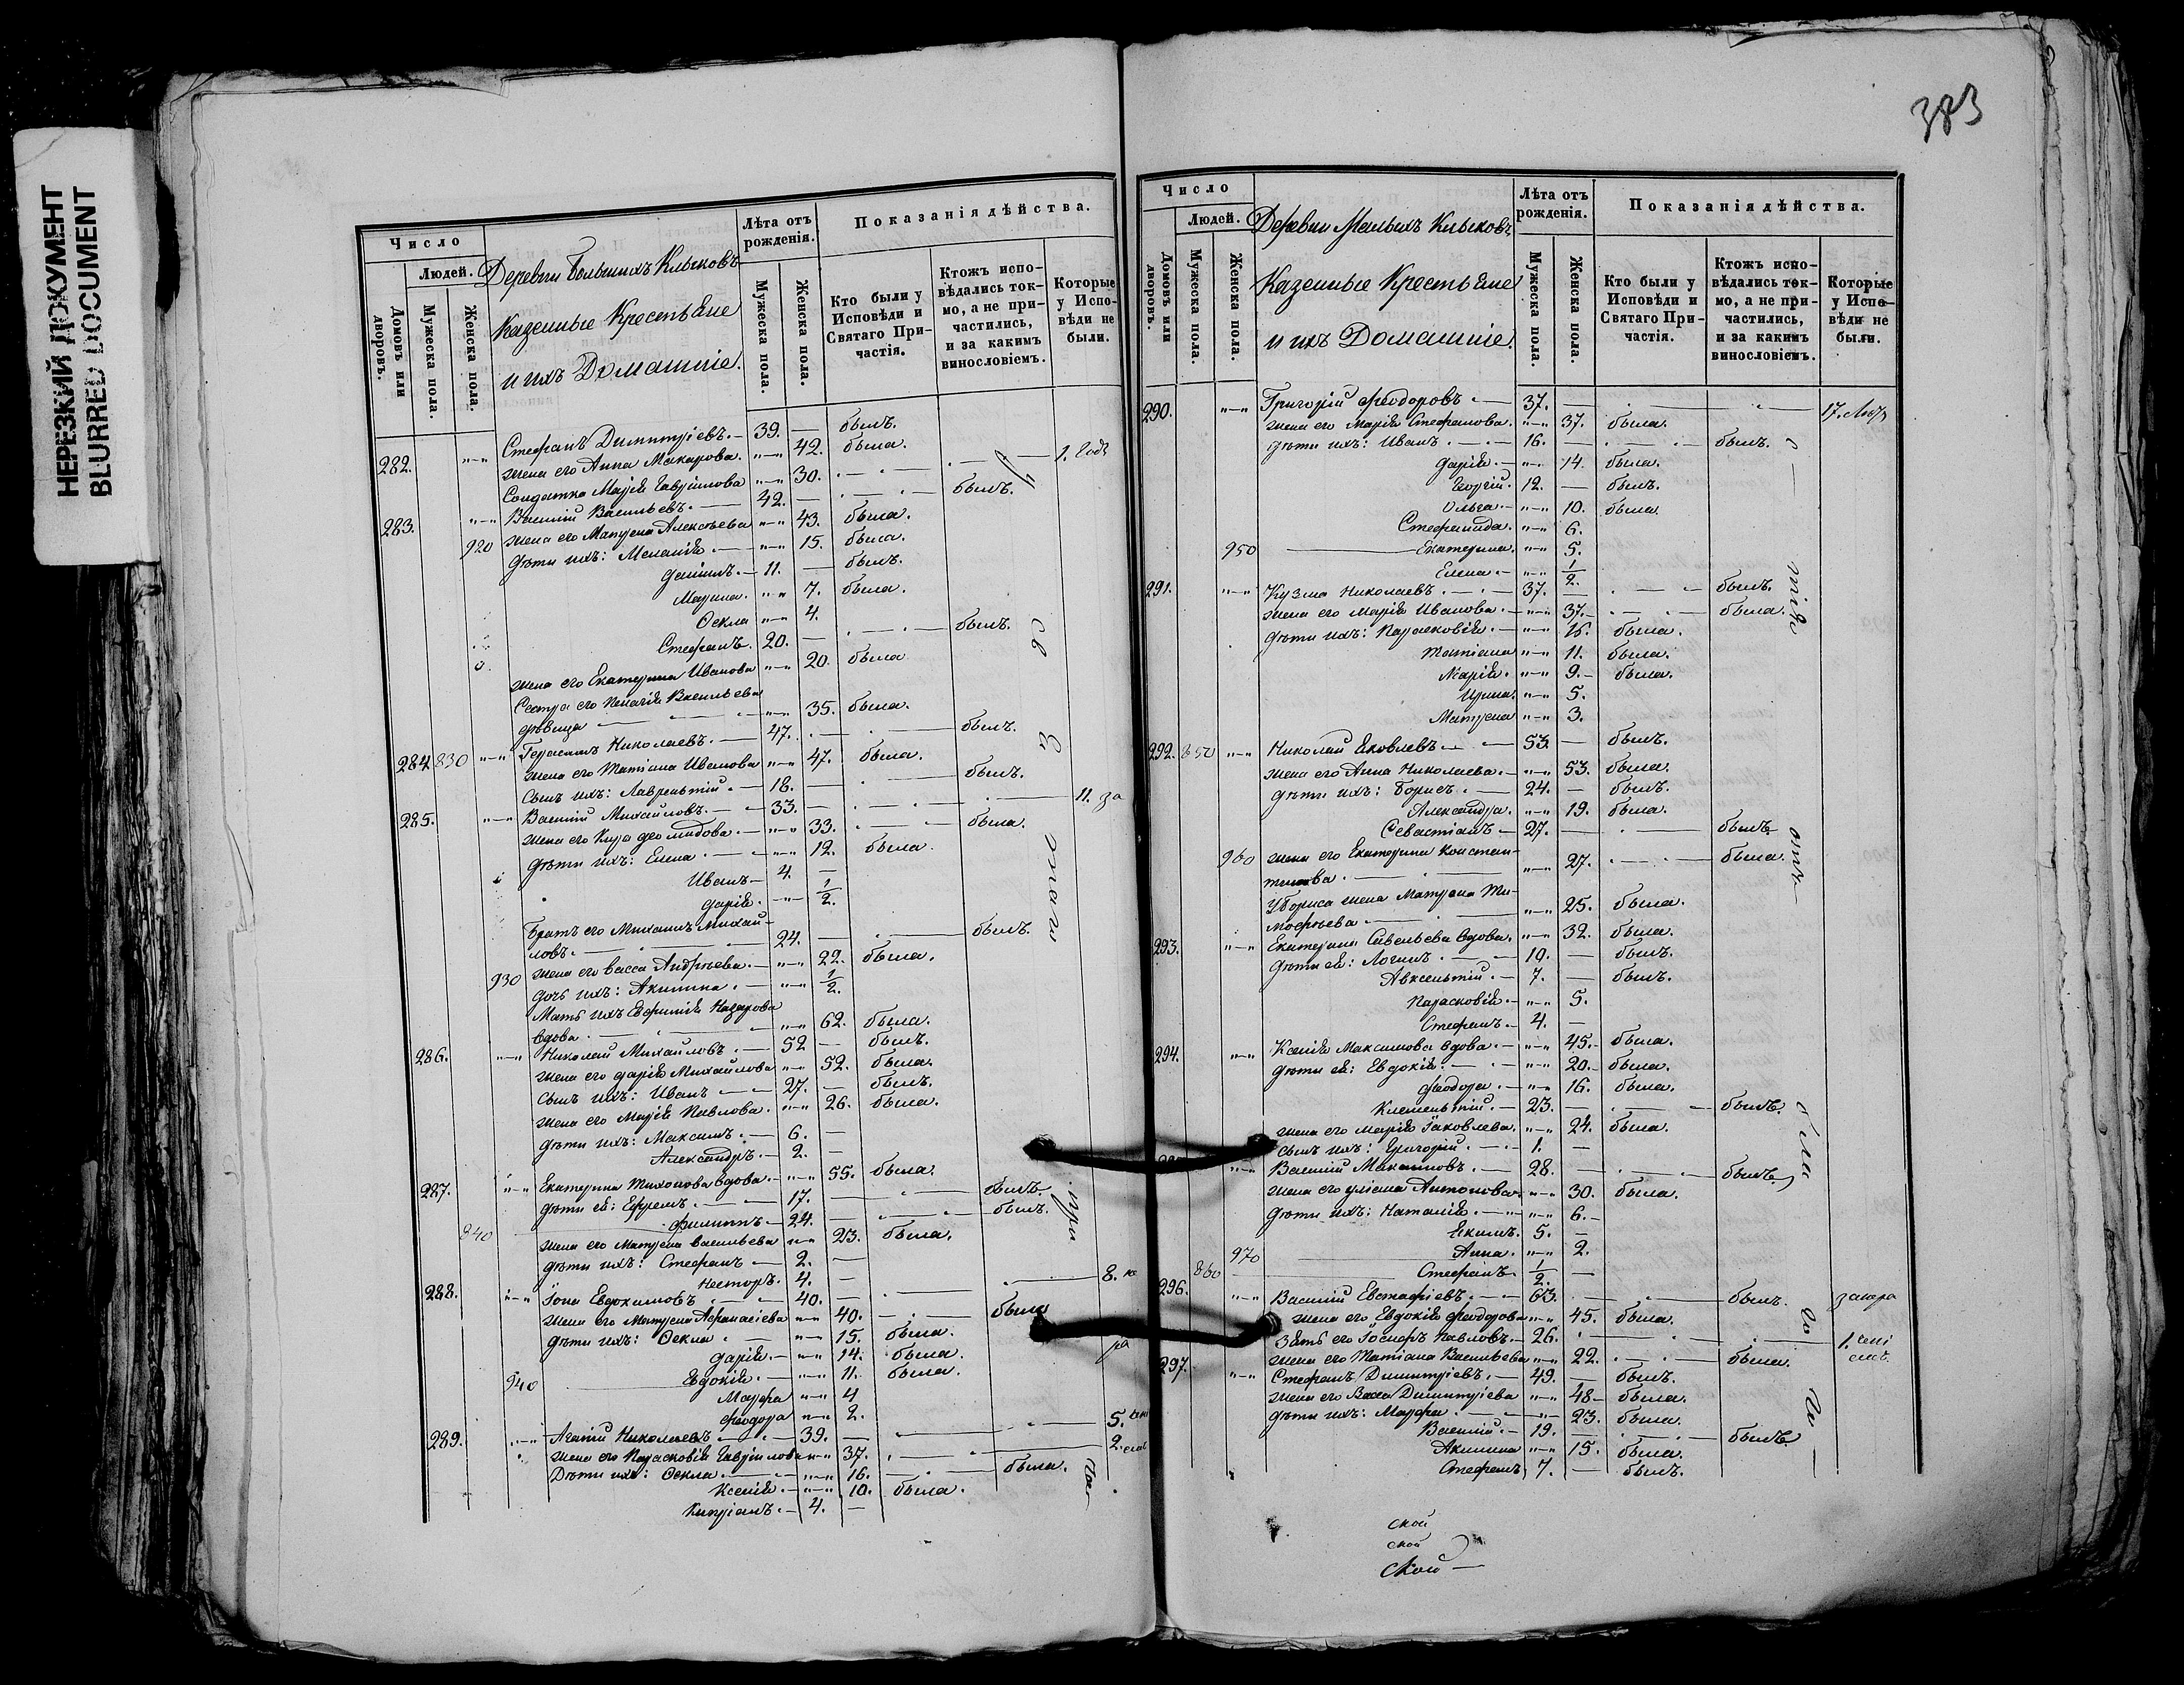 НЕРЕЗКИЙ ДОКУМЕНТ
BLURRED DOCUMENT
Число
Людей.
Домовъ или дворовъ.
Мужеска пола.
Женска пола.
Деревни Большихъ Клыковъ
Казенные Крестьяне
и ихъ Домашніе.
Лѣта отъ рожденія.
Мужеска пола.
Женска пола.
Показанія дѣйства.
Кто были у Исповѣди и Святаго Причастія.
Ктожъ исповѣдались токмо, а не причастились, и за какимъ винословіемъ.
Которые у Исповѣди не были.
282. Стефанъ Димитріевъ. 39. — былъ.
жена его Анна Макарова. 42. была.
Солдатка Марія Гаврилова 30. 1. годъ
283. Василій Васильевъ. 42. — былъ.
920 жена его Матрена Алексѣева 43. была.
дѣти ихъ: Меланія 15. была.
Даніилъ. 11. — былъ.
Марина. 7. была.
Ѳекла 4.
Стефанъ. 20. — былъ.
жена его Екатерина Иванова 20. была
Сестра его Пелагія Васильева
дѣвица 35. была.
284. 830 Герасимъ Николаевъ. 47. былъ.
жена его Татіана Иванова 47. была.
Сынъ ихъ: Лаврентій. 18. — былъ.
285. Василій Михайловъ. 33. — 11. за
жена его Кира 33. была.
дѣти ихъ: Елена. 12. была.
Иванъ 4. —
Дарія. 1/2.
Братъ его Михаилъ Михай-
ловъ. 24. — былъ.
жена его Васса Андрѣева. 22. была.
930 дочь ихъ: Акилина. 1/2.
Мать ихъ Евфимія Назарова
вдова. 62. была.
286. Николай Михайловъ. 52 — былъ.
жена его Дарія Михайлова 52. была.
сынъ ихъ: Иванъ 27. — былъ.
жена его Марія Павлова. 26. была.
дѣти ихъ: Максимъ. 6. —
Александръ. 2. —
287. Екатерина Тихонова вдова. 55. была.
дѣти ея: Ефремъ. 17. — былъ.
840 Филиппъ 24. — былъ.
жена его Матрена Васильева 23. была.
дѣти ихъ: Стефанъ 2. —
Несторъ. 4. —
288. Іона Евдокимовъ 40. — 8. не
жена его Матрена Афанасіева 40. была
дѣти ихъ: Ѳекла. 15. была.
Дарія. 14. была.
940 Евдокія. 11. была.
Марфа 4
Феодора 2.
289. Агапій Николаевъ 39. — 5.
жена его Парасковія Гаврилова 37. 2.
Дѣти ихъ: Ѳекла. 16. была.
Ксенія. 10. была.
Кипріанъ. 4. —
383
Число
Людей.
Домовъ или дворовъ.
Мужеска пола.
Женска пола.
Деревни Малыхъ Клыковъ
Казенные Крестьяне
и ихъ Домашніе.
Лѣта отъ рожденія.
Мужеска пола.
Женска пола.
Показанія дѣйства.
Кто были у Исповѣди и Святаго Причастія.
Ктожъ исповѣдались токмо, а не причастились, и за какимъ винословіемъ.
Которые у Исповѣди не были.
290. Григорій Феодоровъ 37. — 17.
жена его Марія Стефанова. 37. была.
дѣти ихъ: Иванъ. 16. — былъ.
Дарія. 14. была.
Георгій. 12. — былъ.
Ольга. 10. была
Стефанида. 6.
950 Екатерина. 5.
Елена. 1/2.
291. Кузма Николаевъ. 37. — былъ.
жена его Марія Иванова. 37. была.
дѣти ихъ: Парасковія. 15. была.
Татіана 11. была.
Марія. 9. была.
Ирина. 5.
Матрена 3.
292. 850 Николай Яковлевъ 53. — былъ.
жена его Анна Николаева. 53. была.
дѣти ихъ: Борисъ. 24. — былъ.
Александра. 19. была.
Севастіанъ 27. — былъ
960 жена его Екатерина Констан-
тинова. 27. была.
У Бориса жена Матрена Ти-
мофѣева 25. была.
293. Екатерина Савельева вдова. 32. была.
дѣти ея: Логинъ. 10. — былъ.
Авксентій. 7. — былъ.
Парасковія. 5.
Стефанъ. 4. —
294. Ксенія Максимова вдова. 45. была.
дѣти ея: Евдокія. 20. была.
Феодора. 16. была.
Клементій. 23. — былъ.
жена его Марія Іаковлева. 24. была.
сынъ ихъ: Григорій. 1. —
Василій Максимовъ. 28. — былъ
жена его Уліана Антонова. 30. была.
дѣти ихъ: Наталія. 6.
Екимъ. 5. —
970 Анна. 2.
860 Стефанъ 1/2. —
296. Василій Евстафіевъ. 63. былъ.
жена его Евдокія Феодорова 45. была.
Зять его Іосифъ Павловъ. 26. 1.
жена его Татіана Васильева 22. была.
297. Стефанъ Димитріевъ. 49. — былъ.
жена его Васса Димитріева 48. была.
дѣти ихъ: Марфа. 23. была.
Василій. 19. былъ.
Акилина 15. была.
Стефанъ 7. — былъ.
ской
ской
ской